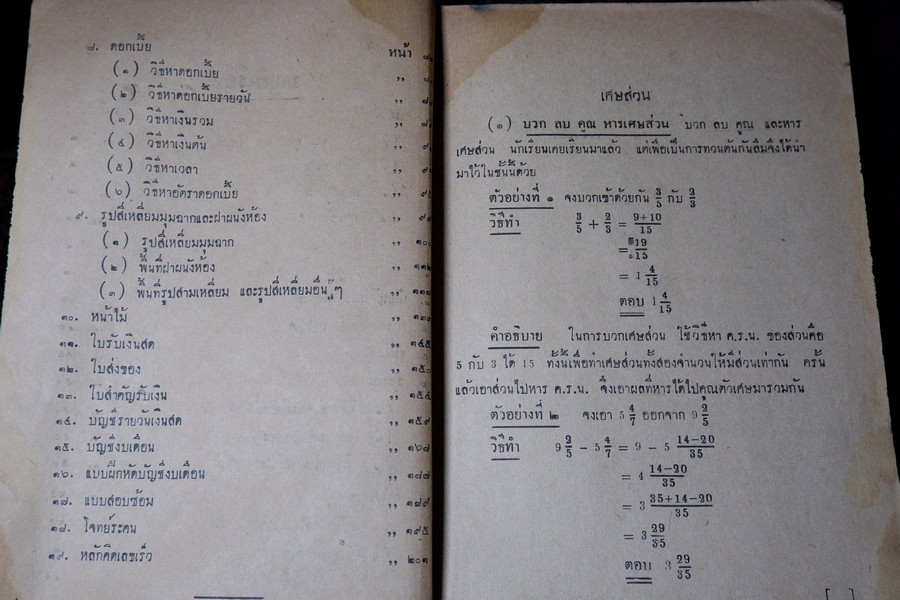 ๘. ดอกเบี้ย
หน้า
(๑) วิธีหาดอกเบี้ย ,,
(๒) วิธีหาดอกเบี้ยรายวัน ,,
(๓) วิธีหาเงินรวม ,,
(๔) วิธีหาเงินต้น ,,
(๕) วิธีหาเวลา ,,
(๖) วิธีหาอัตราดอกเบี้ย ,,
๙. รูปสี่เหลี่ยมมุมฉากและฝาผนังห้อง ,,
(๑) รูปสี่เหลี่ยมมุมฉาก ,,
(๒) พื้นที่ฝาผนังห้อง ,, ๑๑๒
(๓) พื้นที่รูปสามเหลี่ยม และรูปสี่เหลี่ยมอื่น ๆ ,,
๑๐. หน้าไม้ ,,
๑๑. ใบรับเงินสด ,, ๑๔๕
๑๒. ใบส่งของ ,, ๑๕๐
๑๓. ใบสำคัญรับเงิน ,, ๑๕๔
๑๔. บัญชีรายวันเงินสด ,, ๑๕๙
๑๕. บัญชีงบเดือน ,, ๑๖๘
๑๖. แบบฝึกหัดบัญชีงบเดือน ,, ๑๘๗
๑๗. แบบสอบซ้อม ,, ๑๘๙
๑๘. โจทย์ระคน ,, ๑๙๕
๑๙. หลักคิดเลขเร็ว ,, ๒๐๑
เศษส่วน
(๑) บวก ลบ คูณ หารเศษส่วน บวก ลบ คูณ และหาร
เศษส่วน นักเรียนเคยเรียนมาแล้ว แต่เพื่อเป็นการทวนต้นกันลืมจึงได้นำ
มาไว้ในชั้นนี้ด้วย
ตัวอย่างที่ ๑ จงบวกเข้าด้วยกัน 3/5 กับ 2/3
วิธีทำ 3/5 + 2/3 = 9+10/15
= 19/15
= 1 4/15
ตอบ 1 4/15
คำอธิบาย ในการบวกเศษส่วน ใช้วิธีหา ค.ร.น. ของส่วนคือ
5 กับ 3 ได้ 15 ทั้งนี้เพื่อทำเศษส่วนทั้งสองจำนวนให้มีส่วนเท่ากัน ครั้น
แล้วเอาส่วนไปหาร ค.ร.น. จึงเอาผลที่หารได้ไปคูณตัวเศษมารวมกัน
ตัวอย่างที่ ๒ จงเอา 5 4/7 ออกจาก 9 2/5
วิธีทำ 9 2/5 - 5 4/7 = 9 - 5 14-20/35
= 4 14-20/35
= 3 35+14-20/35
= 3 29/35
ตอบ 3 29/35